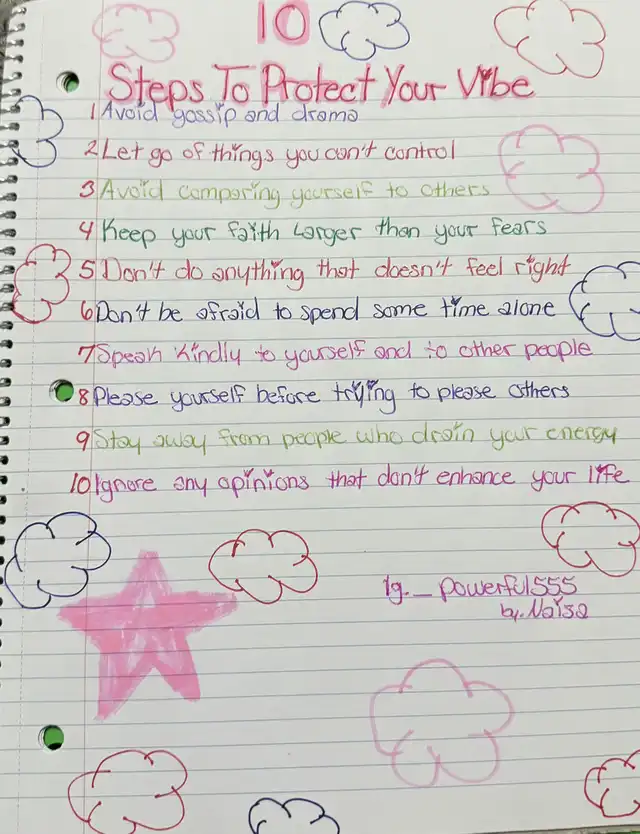 10
Steps To Protect Your Vibe
1 Avoid gossip and drama
2 Let go of things you can't control
3 Avoid comparing yourself to others
4 Keep your faith Larger than your fears
5 Don't do anything that doesn't feel right
6 Don't be afraid to spend some time alone
7 Speak kindly to yourself and to other people
8 Please yourself before trying to please others
9 Stay away from people who drain your energy
10 Ignore any opinions that don't enhance your life
Ig._powerful555
by.Naisa